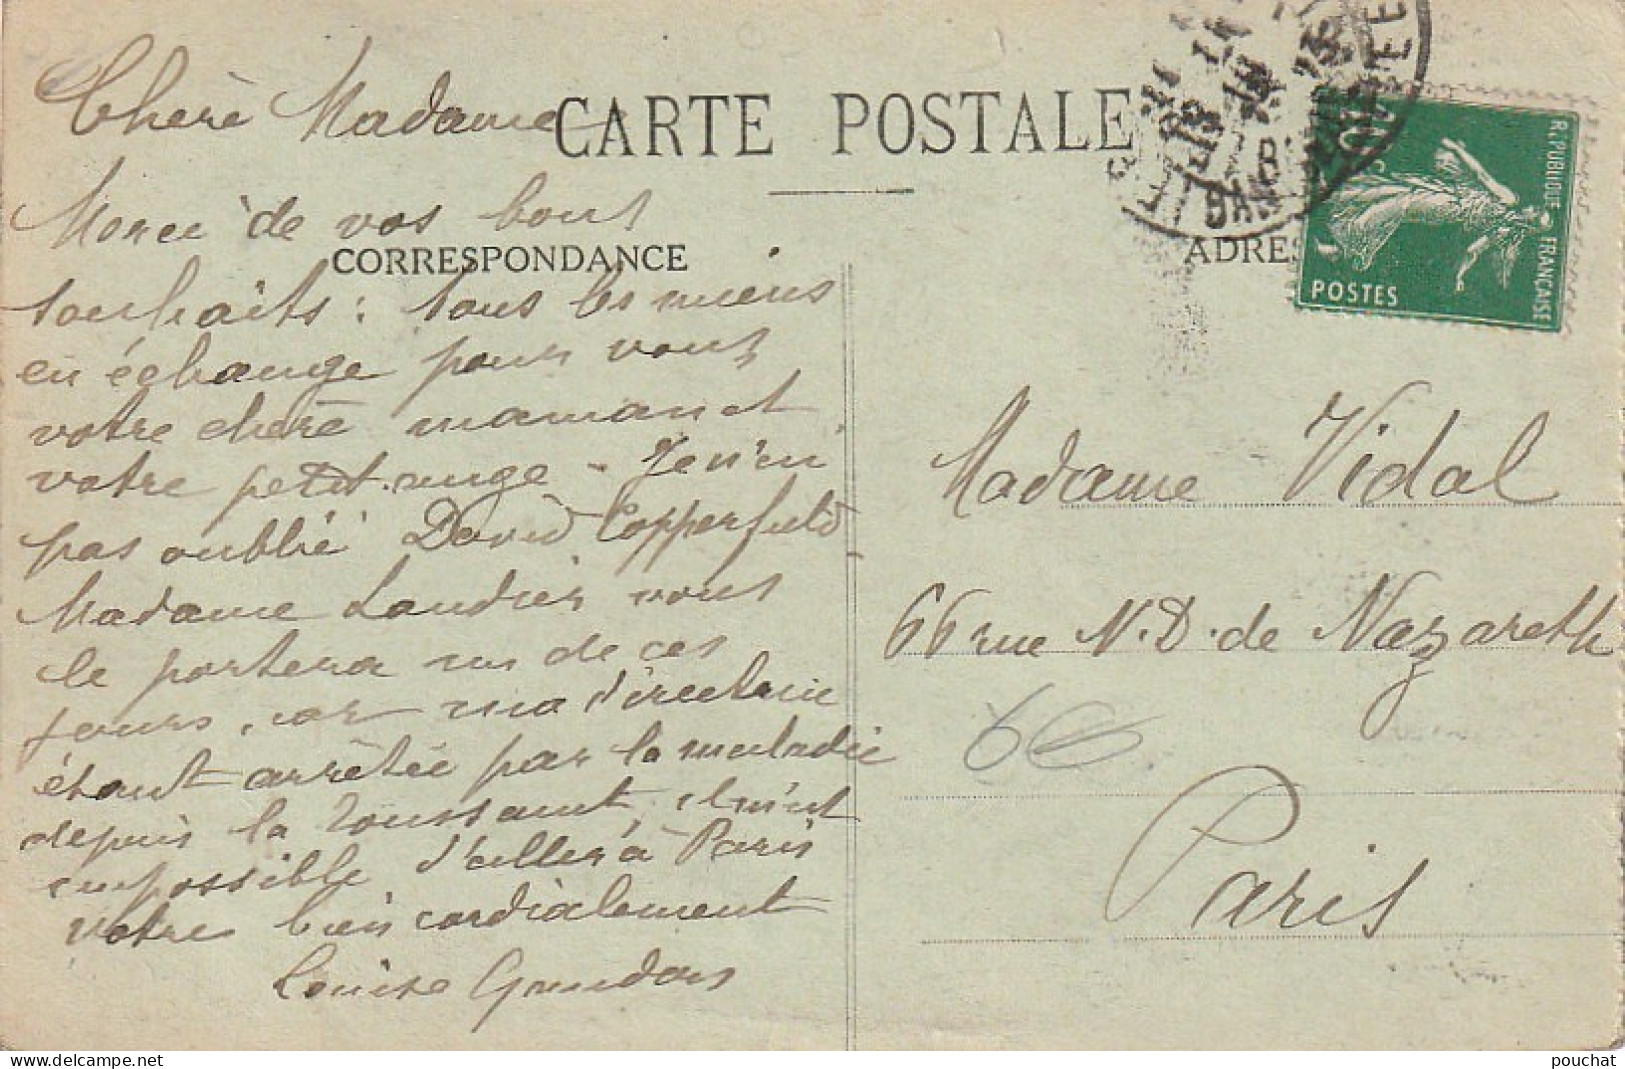 CARTE POSTALE
Chère Madame
Merci de vos bons
CORRESPONDANCE
souhaits : tous les miens
en échange pour vous
votre chère maman et
votre petit ange - Je n'ai
pas oublié David Copperfield
Madame Landier vous
le portera un de ces
jours, car ma directrice
étant arrêtée par la maladie
depuis la Toussaint, il m'est
impossible d'aller à Paris
Votre bien cordialement
Louise
ADRES
RÉPUBLIQUE FRANÇAISE
POSTES
10
Madame Vidal
66 rue N.D. de Nazareth
Paris
pouchat